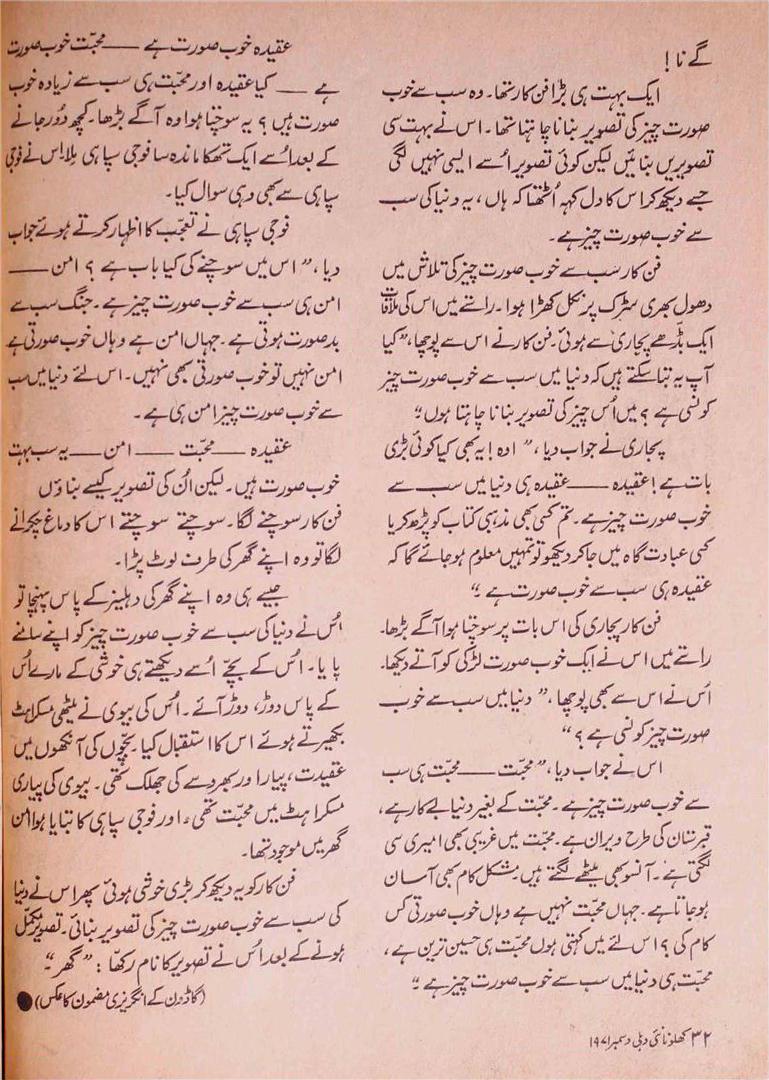 گے نا!
ایک بہت ہی بڑا فن کار تھا۔ وہ سب سے خوب
صورت چیز کی تصویر بنانا چاہتا تھا۔ اس نے بہت سی
تصویریں بنائیں لیکن کوئی تصویر اُسے ایسی نہیں لگی
جسے دیکھ کر اس کا دل کہہ اُٹھتا کہ ہاں، یہ دنیا کی سب
سے خوب صورت چیز ہے۔
فن کار سب سے خوب صورت چیز کی تلاش میں
دھول بھری سڑک پر نکل کھڑا ہوا۔ راستے میں اس کی ملاقات
ایک بڈھے پجاری سے ہوئی۔ فن کار نے اس سے پوچھا، ”کیا
آپ یہ بتا سکتے ہیں کہ دنیا میں سب سے خوب صورت چیز
کونسی ہے؟ میں اُس چیز کی تصویر بنانا چاہتا ہوں“
پجاری نے جواب دیا، ”اوہ! یہ بھی کیا کوئی بڑی
بات ہے! عقیدہ —— عقیدہ ہی دنیا میں سب سے
خوب صورت چیز ہے۔ تم کسی بھی مذہبی کتاب کو پڑھ کر یا
کسی عبادت گاہ میں جا کر دیکھو تو تمہیں معلوم ہو جائے گا کہ
عقیدہ ہی سب سے خوب صورت ہے۔“
فن کار پجاری کی اس بات پر سوچتا ہوا آگے بڑھا۔
راستے میں اس نے ایک خوب صورت لڑکی کو آتے دیکھا۔
اُس نے اس سے بھی پوچھا، ”دنیا میں سب سے خوب
صورت چیز کونسی ہے؟“
اس نے جواب دیا، ”محبت —— محبت ہی سب
سے خوب صورت چیز ہے۔ محبت کے بغیر دنیا بے کار ہے،
قبرستان کی طرح ویران ہے۔ محبت میں غریبی بھی امیری سی
لگتی ہے۔ آنسو بھی میٹھے لگتے ہیں۔ مشکل کام بھی آسان
ہو جاتا ہے۔ جہاں محبت نہیں ہے وہاں خوب صورتی کس
کام کی؟ اس لئے میں کہتی ہوں محبت ہی حسین ترین ہے،
محبت ہی دنیا میں سب سے خوب صورت چیز ہے۔“
عقیدہ خوب صورت ہے —— محبّت خوب صورت
ہے —— کیا عقیدہ اور محبّت ہی سب سے زیادہ خوب
صورت ہیں؟ یہ سوچتا ہوا وہ آگے بڑھا۔ کچھ دُور جانے
کے بعد اُسے ایک تھکا ماندہ سا فوجی سپاہی ملا۔ اس نے فوجی
سپاہی سے بھی وہی سوال کیا۔
فوجی سپاہی نے تعجّب کا اظہار کرتے ہوئے جواب
دیا، ”اس میں سوچنے کی کیا باب ہے؟ امن ——
امن ہی سب سے خوب صورت چیز ہے۔ جنگ سب سے
بدصورت ہوتی ہے۔ جہاں امن ہے وہاں خوب صورتی ہے
امن نہیں تو خوب صورتی بھی نہیں۔ اس لئے دنیا میں سب
سے خوب صورت چیز امن ہی ہے۔
عقیدہ —— محبّت —— امن —— یہ سب بہت
خوب صورت ہیں۔ لیکن اُن کی تصویر کیسے بناؤں
فن کار سوچنے لگا۔ سوچتے سوچتے اس کا دماغ چکرانے
لگا تو وہ اپنے گھر کی طرف لوٹ پڑا۔
جیسے ہی وہ اپنے گھر کی دہلیز کے پاس پہنچا تو
اُس نے دنیا کی سب سے خوب صورت چیز کو اپنے سامنے
پایا۔ اُس کے بچّے اُسے دیکھتے ہی خوشی کے مارے اُس
کے پاس دوڑ، دوڑ آئے۔ اُس کی بیوی نے میٹھی مسکراہٹ
بکھیرتے ہوئے اس کا استقبال کیا۔ بچّوں کی آنکھوں میں
عقیدت، پیار اور بھروسے کی جھلک تھی۔ بیوی کی پیاری
مسکراہٹ میں محبّت تھی، اور فوجی سپاہی کا بتایا ہوا امن
گھر میں موجود تھا۔
فن کار کو یہ دیکھ کر بڑی خوشی ہوئی پھر اس نے دنیا
کی سب سے خوب صورت چیز کی تصویر بنائی۔ تصویر مکمّل
ہونے کے بعد اُس نے تصویر کا نام رکھّا: ”گھر“۔
(گاڈون کے انگریزی مضمون کا عکس) ●
۳۲ کھلونا نئی دہلی دسمبر ۱۹۷۱